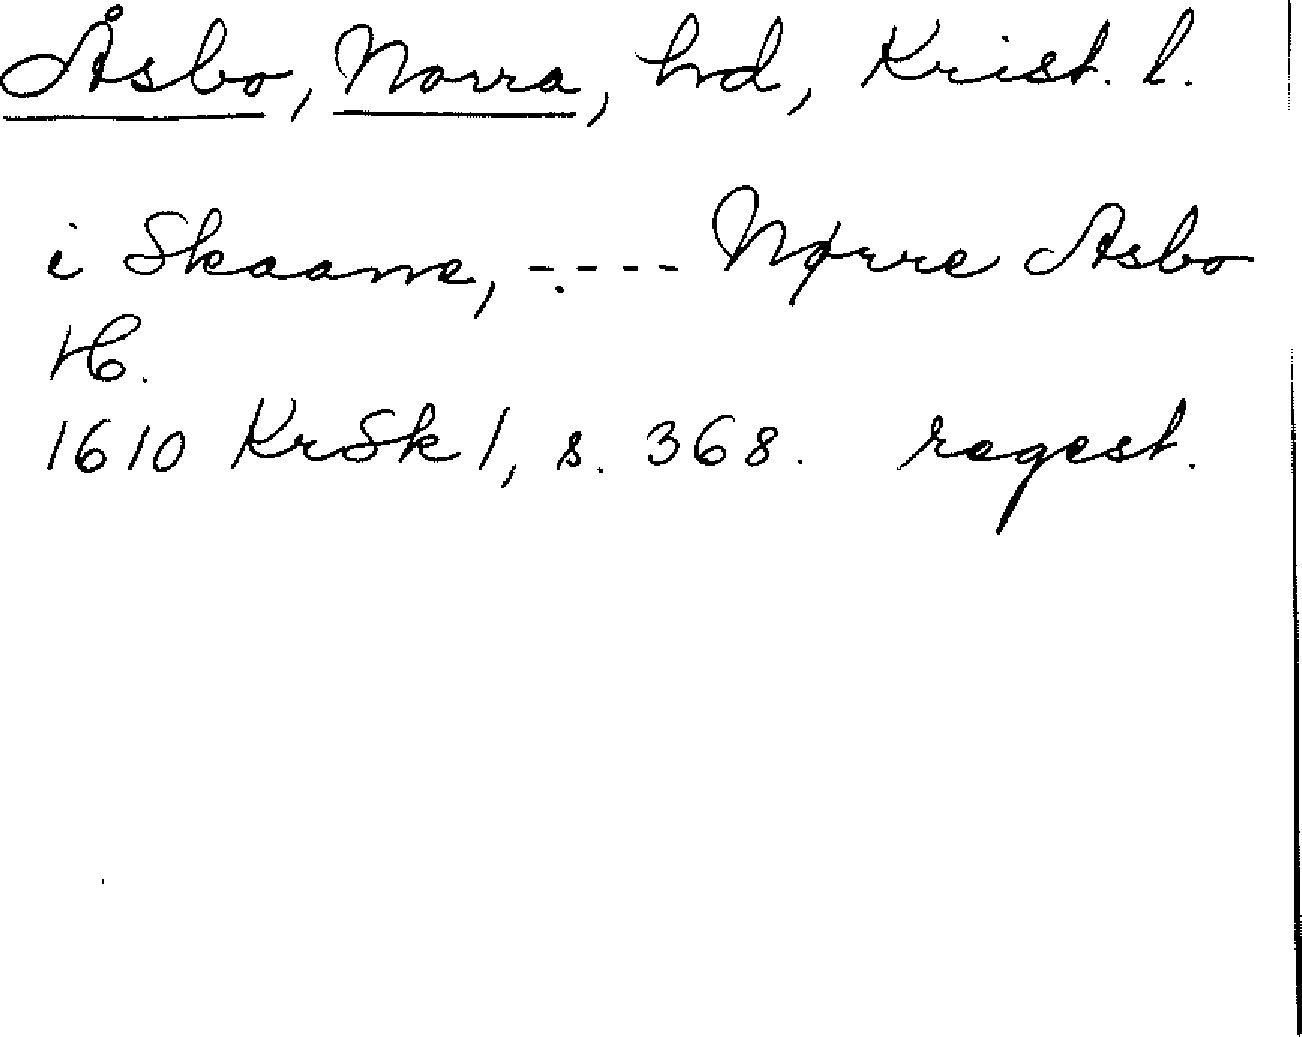 Åsbo, Norra, hrd, Krist. l.
i Skaane, ---- Nørre Asbo
H.
1610 KrSk 1, s. 368. regest.